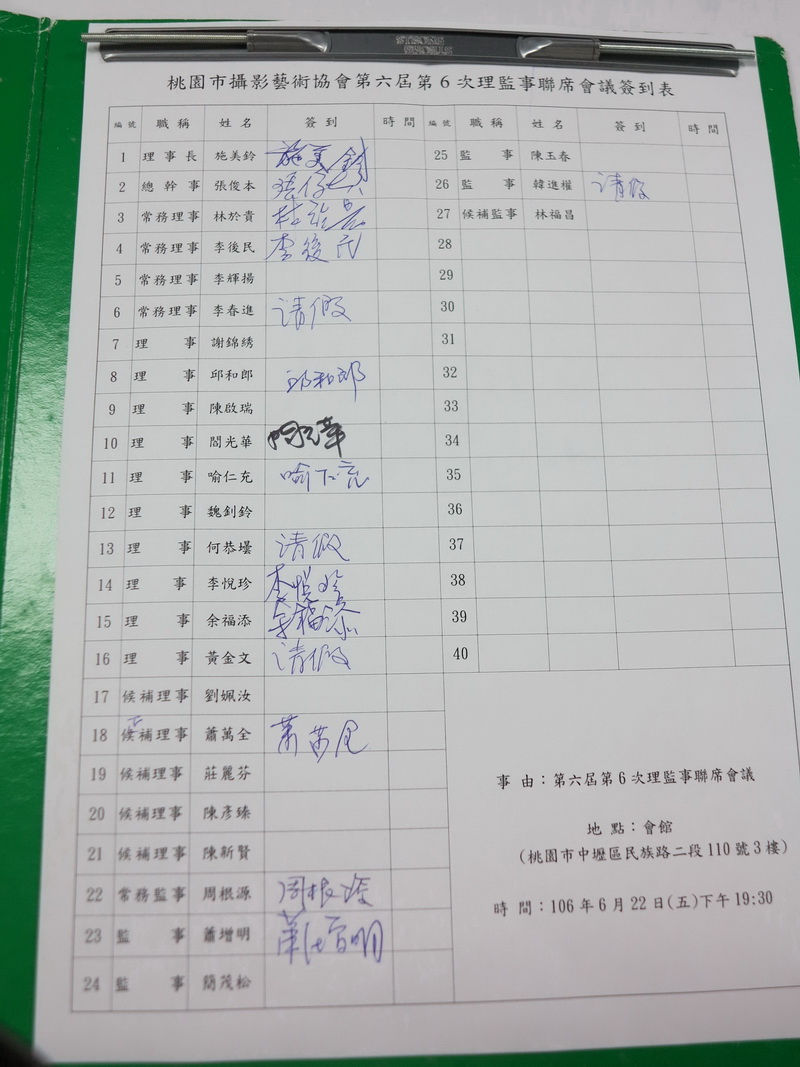 桃園市攝影藝術協會第六屆第6次理監事聯席會議簽到表
編號 職稱 姓名 簽到 時間 編號 職稱 姓名 簽到 時間
1 理事長 施美鈴 施美鈴 25 監事 陳玉春
2 總幹事 張俊本 26 監事 韓進權 请假
3 常務理事 林於貴 27 候補監事 林福昌
4 常務理事 李後民 李後民 28
5 常務理事 李輝揚 29
6 常務理事 李春進 请假 30
7 理事 謝錦綉 31
8 理事 邱和郎 邱和郎 32
9 理事 陳啟瑞 33
10 理事 閻光華 34
11 理事 喻仁充 喻仁充 35
12 理事 魏釗鈴 36
13 理事 何恭壜 请假 37
14 理事 李悅珍 李悅珍 38
15 理事 余福添 余福添 39
16 理事 黃金文 请假 40
17 候補理事 劉姵汝
18 候補理事 蕭萬全
19 候補理事 莊麗芬
20 候補理事 陳彥臻
21 候補理事 陳新賢
22 常務監事 周根源 周根源
23 監事 蕭增明
24 監事 簡茂松
事由：第六屆第6次理監事聯席會議
地點：會館
(桃園市中壢區民族路二段110號3樓)
時間：106年6月22日(五)下午19:30